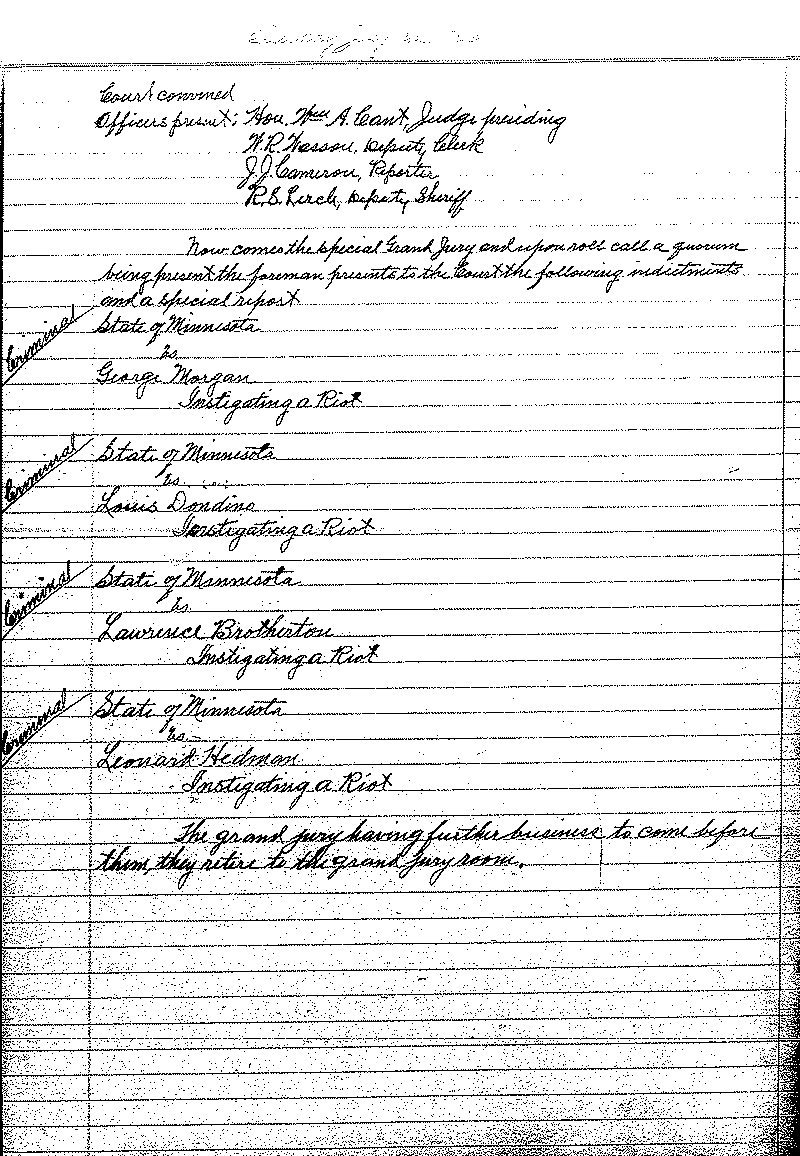 Court convened
Officers present: Hon. Wm A. Cant, Judge presiding
W.R. Wasson, Deputy Clerk
J.J. Cameron, Reporter
R.S. Lerch, Deputy Sheriff
Now comes the special Grand Jury and upon roll call a quorum
being present the foreman presents to the Court the following indictments
and a special report
Criminal
State of Minnesota
vs
George Morgan
Instigating a Riot
Criminal
State of Minnesota
vs
Louis Dondino
Instigating a Riot
Criminal
State of Minnesota
vs
Lawrence Brotherton
Instigating a Riot
Criminal
State of Minnesota
vs
Leonard Hedman
Instigating a Riot
The grand jury having further business to come before
them, they retire to the grand jury room.